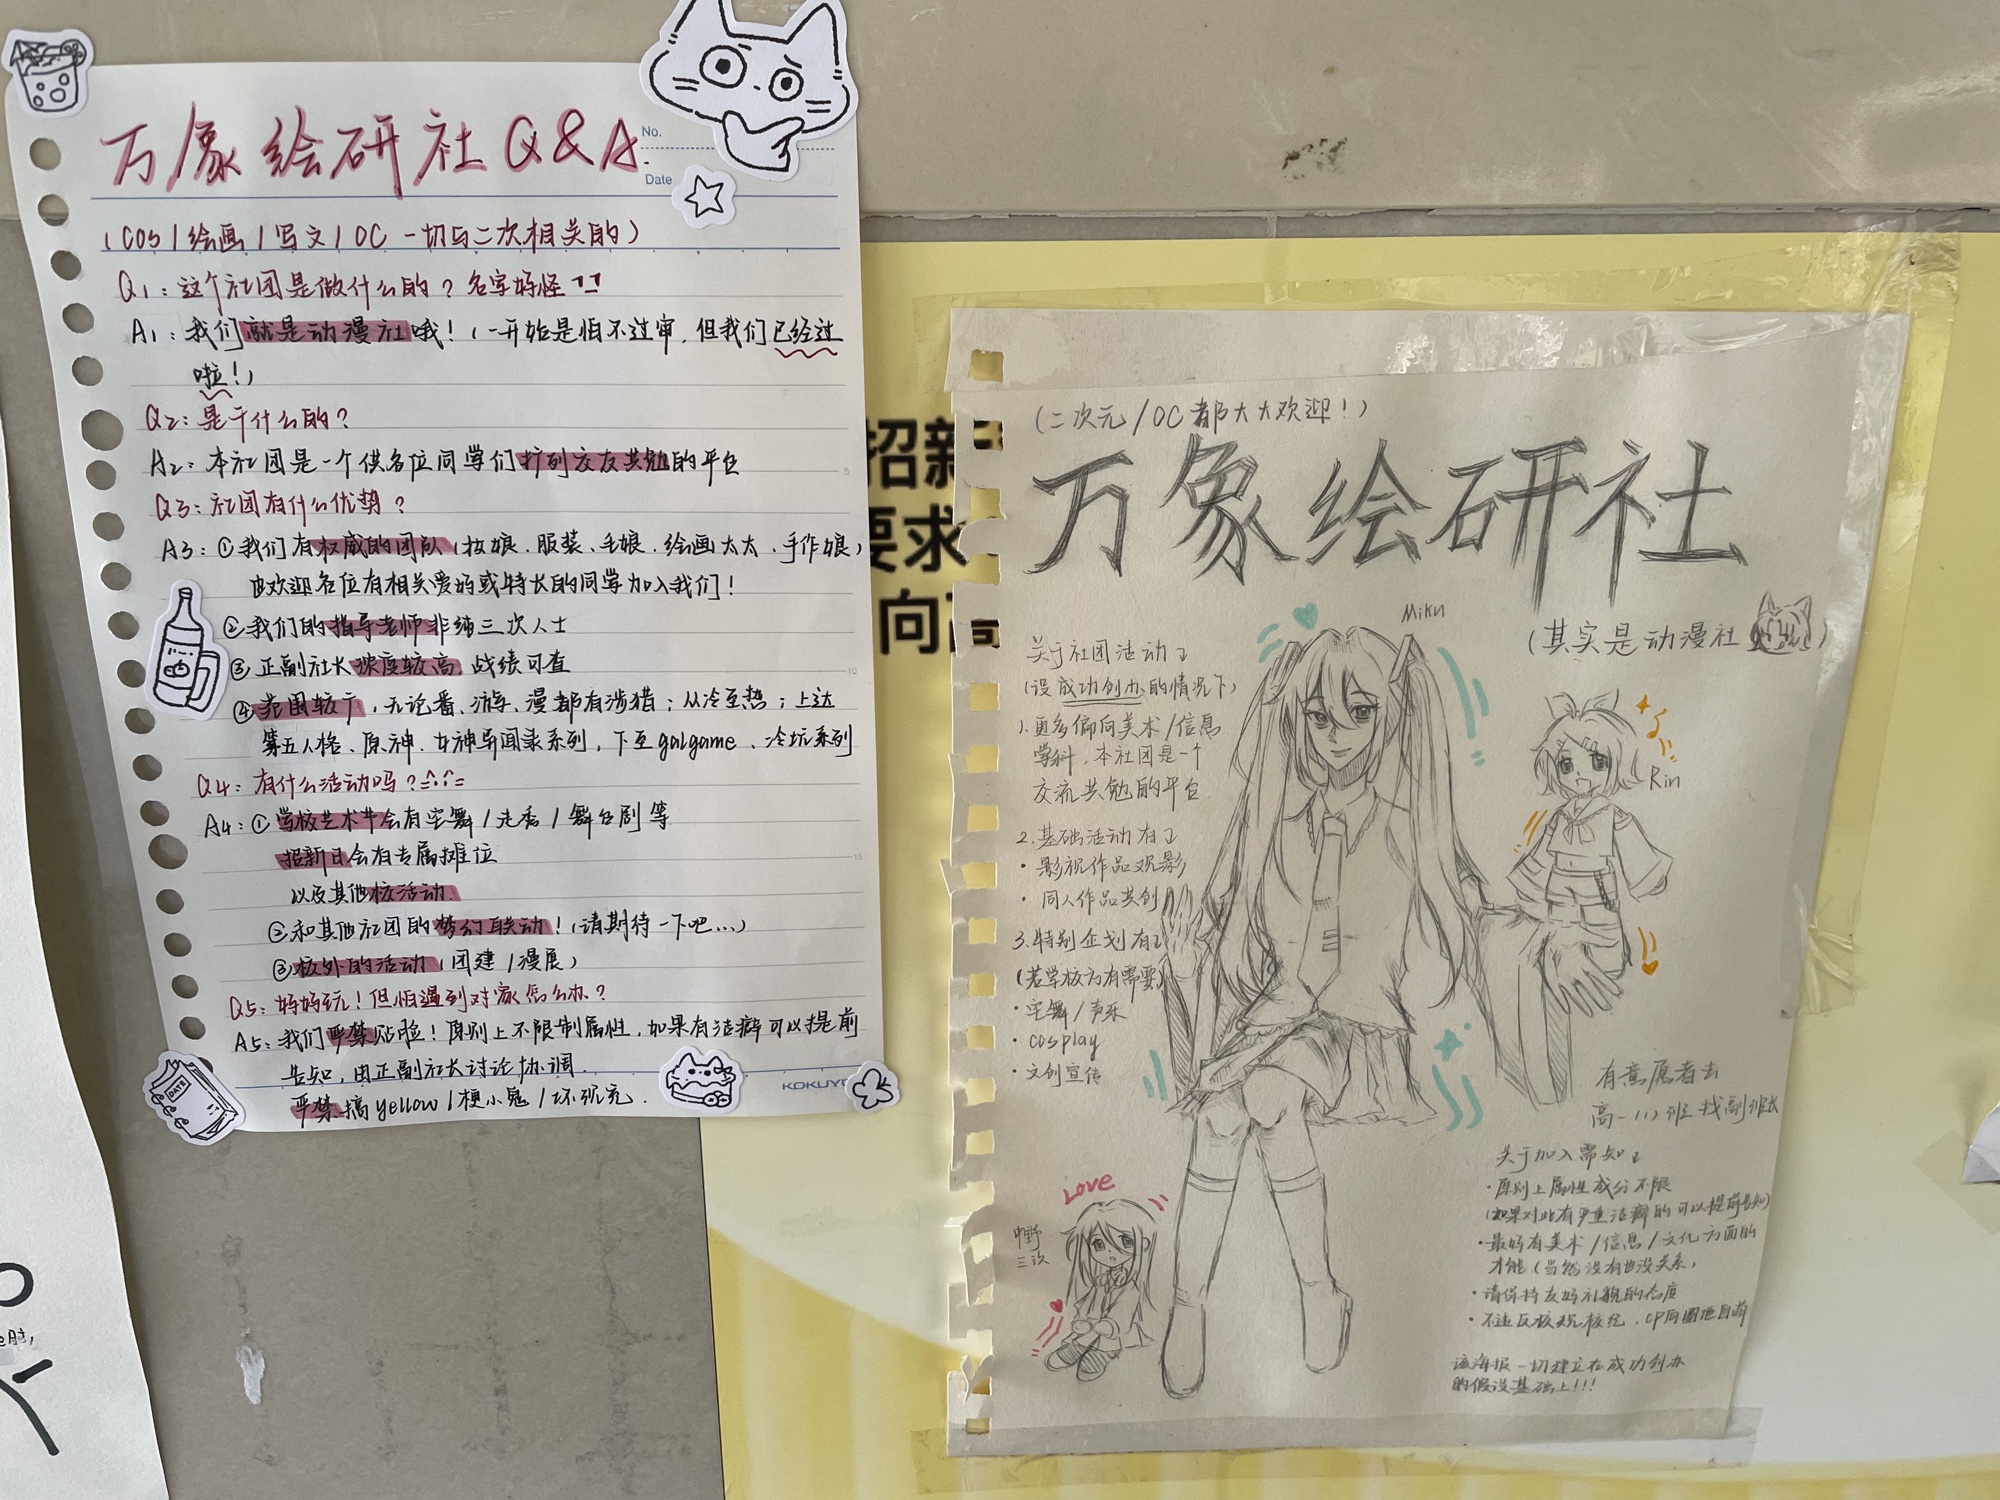 万象绘研社Q&A.
No.
Date
(COS/绘画/写文/OC 一切与二次相关的)
Q1:这个社团是做什么的?名字好怪
A1:我们就是动漫社哦!(一开始是怕不过审,但我们已经过
啦!)
Q2:是干什么的?
A2:本社团是一个供各位同学们扩列交友共勉的平台
Q3:社团有什么优势?
A3:①我们有权威的团队(妆娘、服装、毛娘、绘画太太、手作娘)
也欢迎各位有相关爱好或特长的同学加入我们!
②我们的指导老师非纯三次人士
③正副社长深度较高,战绩可查
④范围较广,无论番、游、漫都有涉猎;从冷至热;上达
第五人格、原神、女神异闻录系列,下至galgame、冷坑系列
Q4:有什么活动吗?
A4:①学校艺术节会有宅舞/走秀/舞台剧等
招新日会有专属摊位
以及其他校活动.
②和其他社团的梦幻联动!(请期待一下吧...)
③校外的活动(团建/漫展)
Q5:好好玩!但怕遇到对家怎么办?
A5:我们严禁贴脸!原则上不限制属性,如果有洁癖可以提前
告知,由正副社长讨论协调.
严禁搞yellow/梗小鬼/坏玩.
KOKUYO
DATE
招新
要求
向
(二次元/OC都大大欢迎!)
万象绘研社
Miku
(其实是动漫社)
关于社团活动
(设成功创办的情况下)
1.更多偏向美术/信息
学科,本社团是一个
交流共勉的平台.
2.基础活动有
·影视作品观影
·同人作品共创
3.特别企划有
(若学校方有需要)
·宅舞/声乐
·cosplay
·文创宣传
Rin
Love
中野
三玖
有意愿者去
高一(1)班找副班长
关于加入需知
·原则上属性成分不限
(如果对此有严重洁癖的可以提前告知)
·最好有美术/信息/文化方面的
才能(当然没有也没关系)
·请保持友好礼貌的态度
·不违反校规校纪,CP同圈地自萌
该海报一切建立在成功创办
的假设基础上!!!